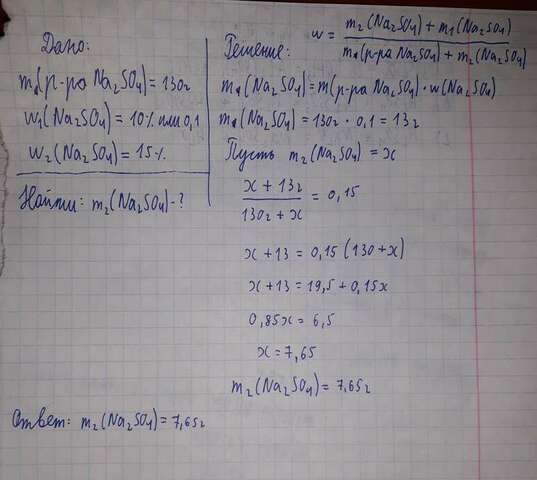 Дано:
m₁(р-ра Na₂SO₄) = 130г
w₁(Na₂SO₄) = 10% или 0,1
w₂(Na₂SO₄) = 15%
Найти: m₂(Na₂SO₄) - ?
Решение:
w = m₂(Na₂SO₄) + m₁(Na₂SO₄)
m₁(р-ра Na₂SO₄) + m₂(Na₂SO₄)
m₁(Na₂SO₄) = m(р-ра Na₂SO₄) · w(Na₂SO₄)
m₁(Na₂SO₄) = 130г · 0,1 = 13г
Пусть m₂(Na₂SO₄) = x
x + 13г
130г + x
= 0,15
x + 13 = 0,15 (130 + x)
x + 13 = 19,5 + 0,15x
0,85x = 6,5
x = 7,65
m₂(Na₂SO₄) = 7,65г
Ответ: m₂(Na₂SO₄) = 7,65г